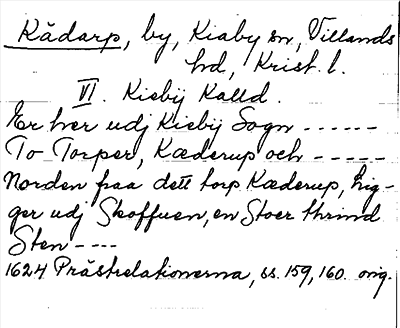 Kädarp, by, Kiaby sn, Villands
hd, Krist. l.
VI. Kiebÿ Kalld.
Er her udj Kiebÿ Sogn ------
To Torper, Kæderup och -----
Norden fraa dett torp Kæderup, Lig-
ger udj Skoffuen, en Stoer thrind
Sten ----
1624 Prästrelationerna, ss. 159, 160. orig.